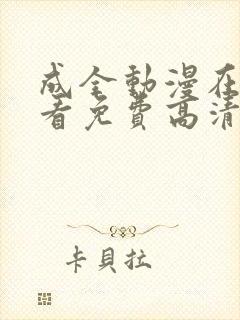 成全動漫在
看免費高清
卡貝拉